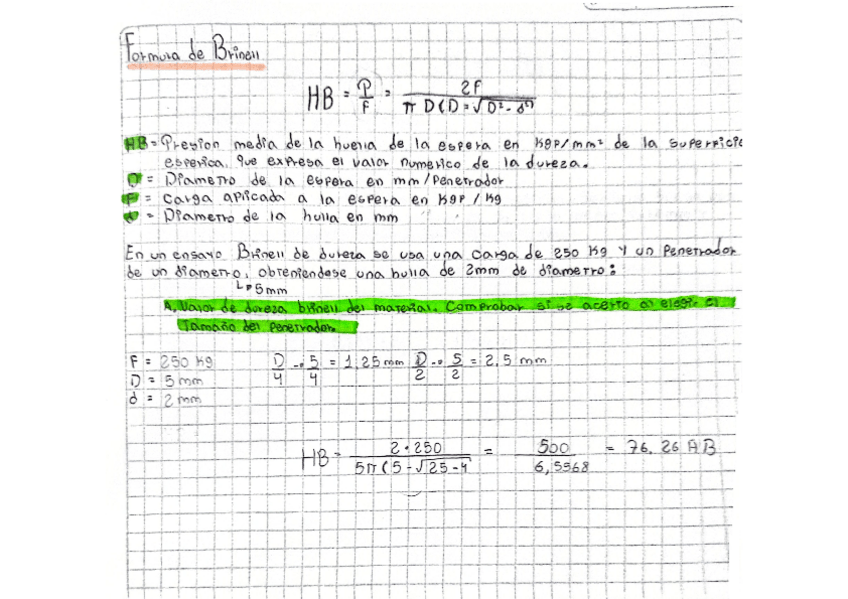 Formula de Brinell
HB = P/F = 2F / π D(D = √D² - d²)
HB = Presion media de la huella de la espera en Kgp/mm² de la superficie
esperica, que expresa el valor numerico de la dureza.
D = Diametro de la espera en mm/Penetrador
F = Carga aplicada a la espera en Kgp / Kg
d = Diametro de la hulla en mm
En un ensayo Brinell de dureza se usa una carga de 250 Kg y un Penetrador
de un diametro, obteniendose una hulla de 2mm de diametro:
↳ 5mm
A. Valor de dureza brinell del material. Comprobar si se acerto al elegir el
Tamaño del Penetrador.
F = 250 Kg D/4 → 5/4 = 1,25 mm D/2 → 5/2 = 2,5 mm
D = 5 mm
d = 2 mm
HB = 2·250 / 5π(5-√25-4 = 500 / 6,5568 = 76,26 AB